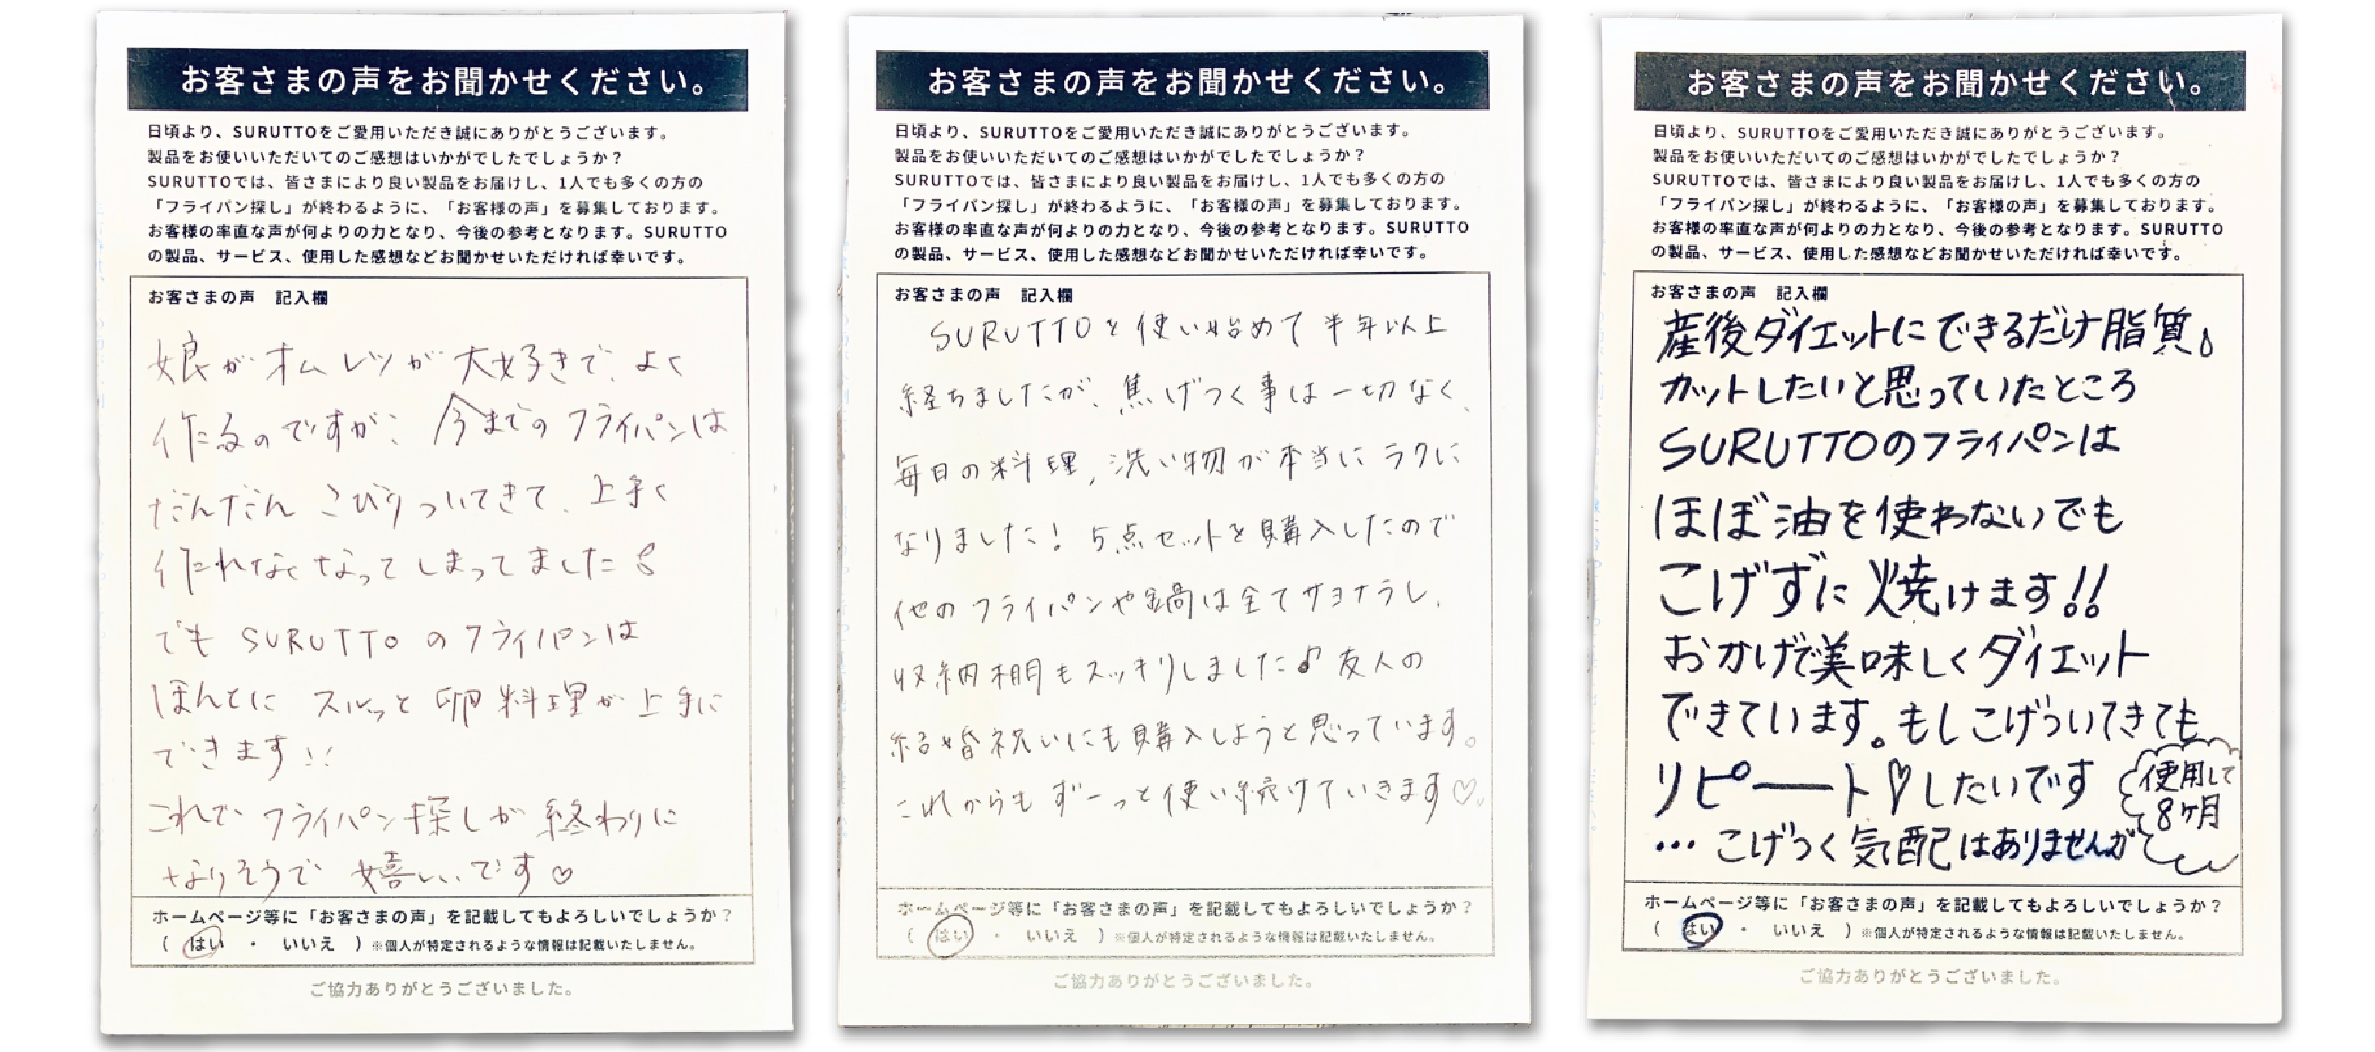 お客さまの声をお聞かせください。
日頃より、SURUTTOをご愛用いただき誠にありがとうございます。
製品をお使いいただいてのご感想はいかがでしたでしょうか？
SURUTTOでは、皆さまにより良い製品をお届けし、1人でも多くの方の
「フライパン探し」が終わるように、「お客様の声」を募集しております。
お客様の率直な声が何よりの力となり、今後の参考となります。SURUTTO
の製品、サービス、使用した感想などお聞かせいただければ幸いです。
お客さまの声　記入欄
娘がオムレツが大好きで、よく
作るのですが、今までのフライパンは
だんだんこびりついてきて、上手く
作れなくなってしまってました
でもSURUTTOのフライパンは
ほんとにスルっと卵料理が上手に
できます!!
これでフライパン探しが終わりに
なりそうで嬉しいです♡
ホームページ等に「お客さまの声」を記載してもよろしいでしょうか？
（　はい　・　いいえ　）※個人が特定されるような情報は記載いたしません。
ご協力ありがとうございました。
お客さまの声をお聞かせください。
日頃より、SURUTTOをご愛用いただき誠にありがとうございます。
製品をお使いいただいてのご感想はいかがでしたでしょうか？
SURUTTOでは、皆さまにより良い製品をお届けし、1人でも多くの方の
「フライパン探し」が終わるように、「お客様の声」を募集しております。
お客様の率直な声が何よりの力となり、今後の参考となります。SURUTTO
の製品、サービス、使用した感想などお聞かせいただければ幸いです。
お客さまの声　記入欄
SURUTTOを使い始めて半年以上
経ちましたが、焦げつく事は一切なく、
毎日の料理、洗い物が本当にラクに
なりました！5点セットを購入したので
他のフライパンや鍋は全てサヨナラし、
収納棚もスッキリしました♪友人の
結婚祝いにも購入しようと思っています。
これからもずーっと使い続けていきます♡。
ホームページ等に「お客さまの声」を記載してもよろしいでしょうか？
（　はい　・　いいえ　）※個人が特定されるような情報は記載いたしません。
ご協力ありがとうございました。
お客さまの声をお聞かせください。
日頃より、SURUTTOをご愛用いただき誠にありがとうございます。
製品をお使いいただいてのご感想はいかがでしたでしょうか？
SURUTTOでは、皆さまにより良い製品をお届けし、1人でも多くの方の
「フライパン探し」が終わるように、「お客様の声」を募集しております。
お客様の率直な声が何よりの力となり、今後の参考となります。SURUTTO
の製品、サービス、使用した感想などお聞かせいただければ幸いです。
お客さまの声　記入欄
産後ダイエットにできるだけ脂質
カットしたいと思っていたところ
SURUTTOのフライパンは
ほぼ油を使わないでも
こげずに焼けます!!
おかげで美味しくダイエット
できています。もしこげついてきても
リピート♡したいです
使用して
8ヶ月
…こげつく気配はありませんが
ホームページ等に「お客さまの声」を記載してもよろしいでしょうか？
（　はい　・　いいえ　）※個人が特定されるような情報は記載いたしません。
ご協力ありがとうございました。